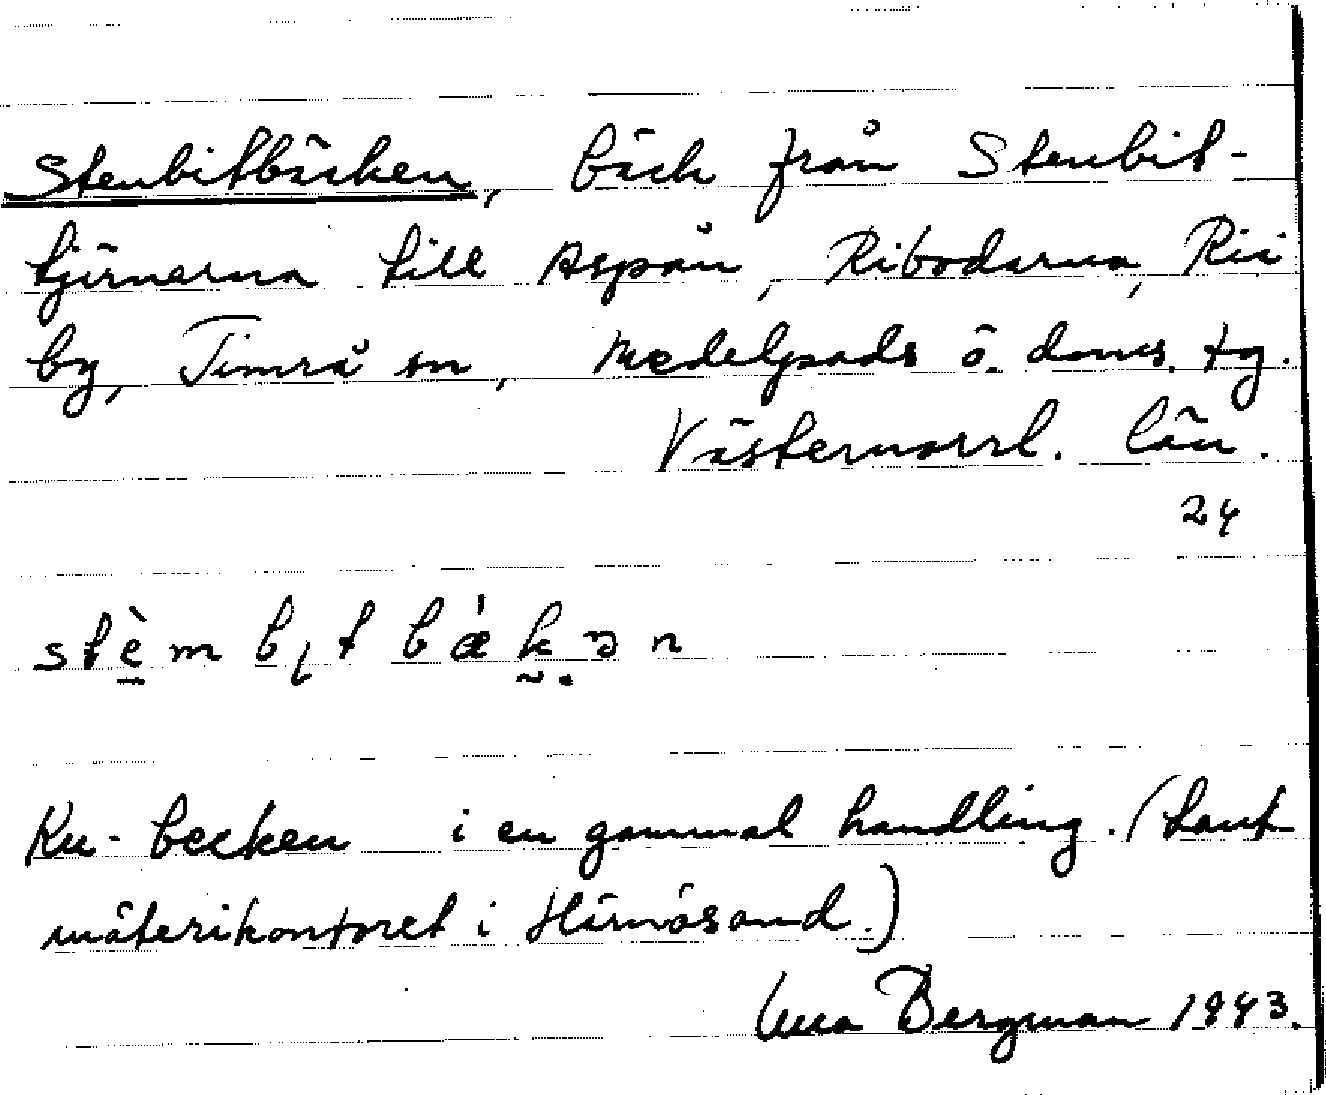 Stenbitbäcken, bäck från Stenbit-
tjärnarna till Aspån, Ribodarna, Ri
by, Timrå sn, Medelpads ö. doms. tg.
Västernorrl. län.
24
stèm bıt bæ̀kən
Ku-becken i en gammal handling. (Lant
mäterikontoret i Härnösand.)
Bergman 1943.